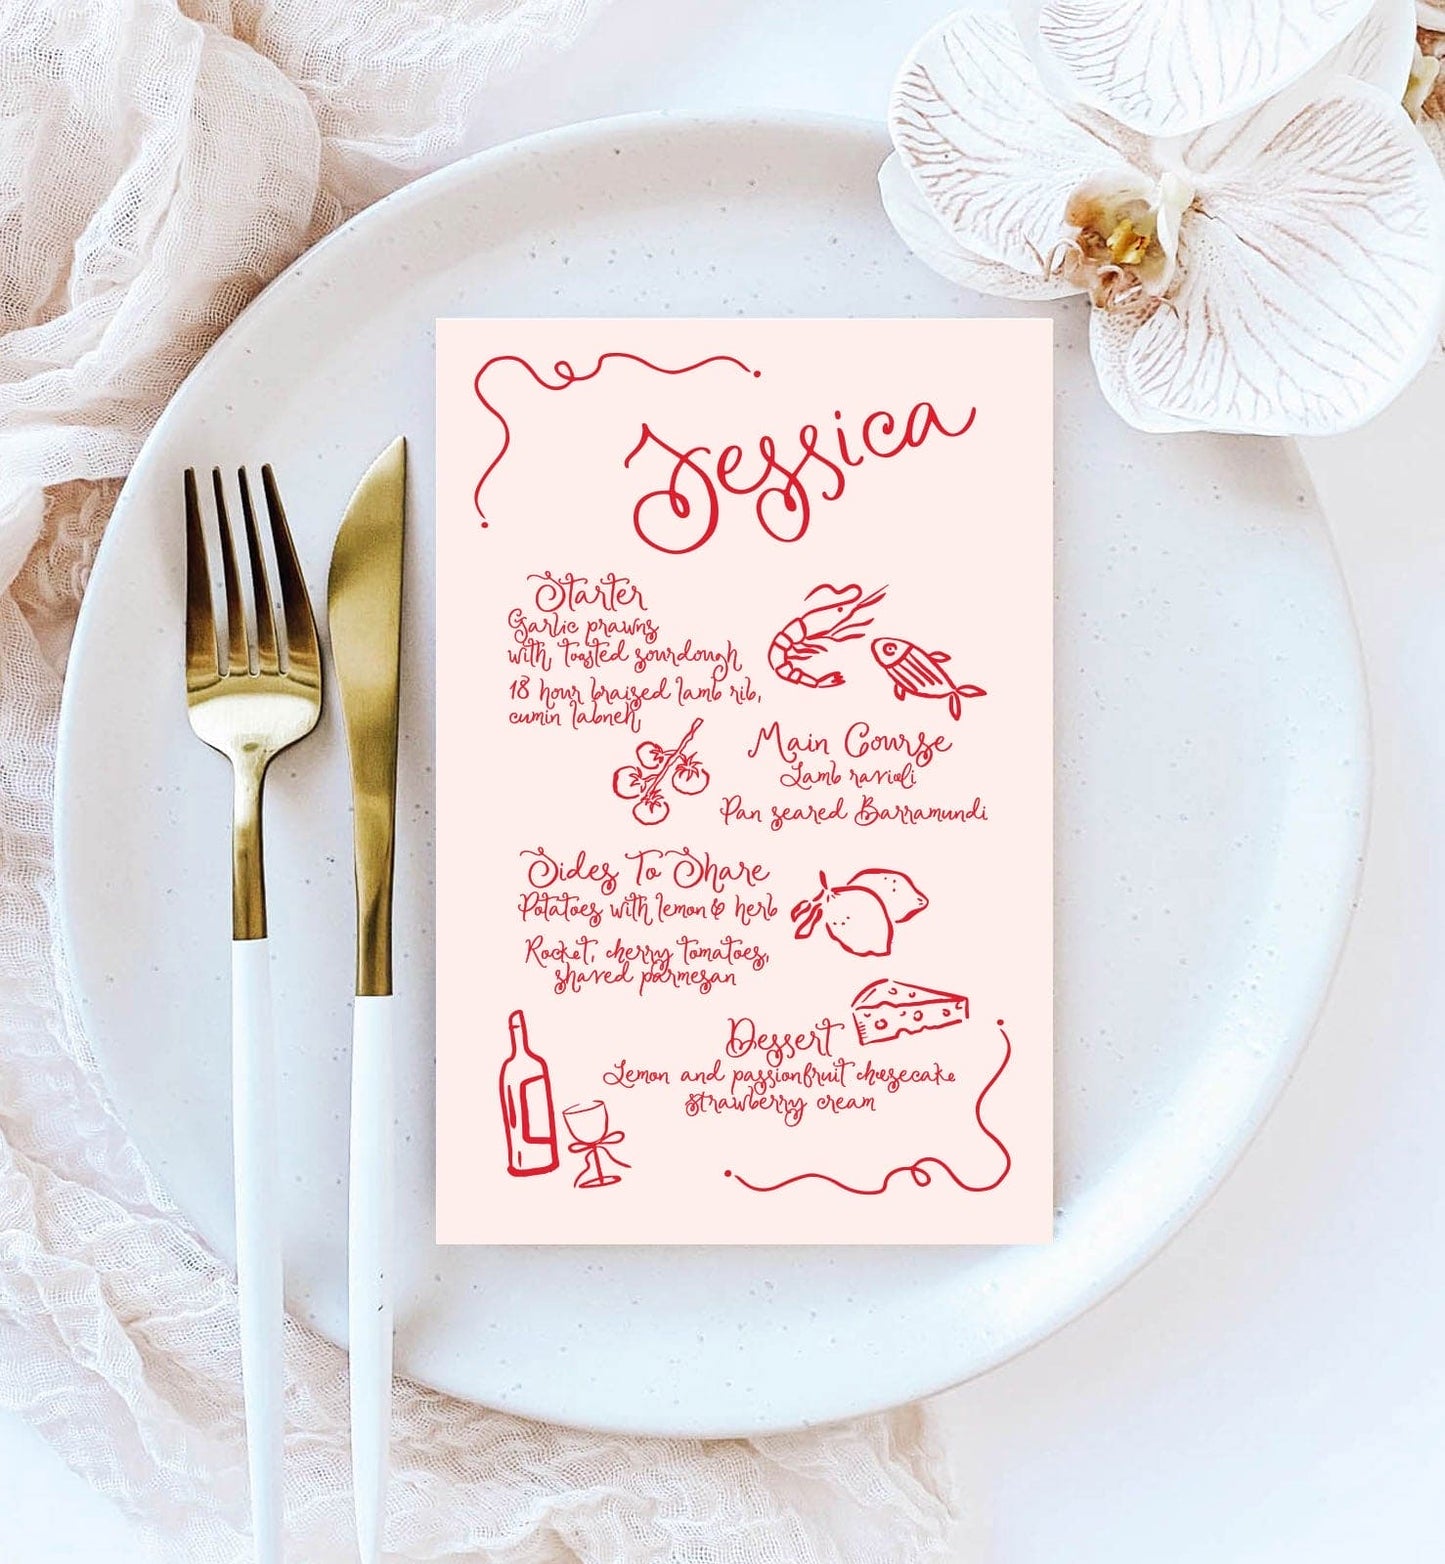 Jessica
Starter
Garlic prawns
with toasted sourdough
18 hour braised lamb rib,
cumin labneh
Main Course
Lamb ravioli
Pan seared Barramundi
Sides To Share
Potatoes with lemon & herb
Rocket, cherry tomatoes,
shaved parmesan
Dessert
Lemon and passionfruit cheesecake
strawberry cream